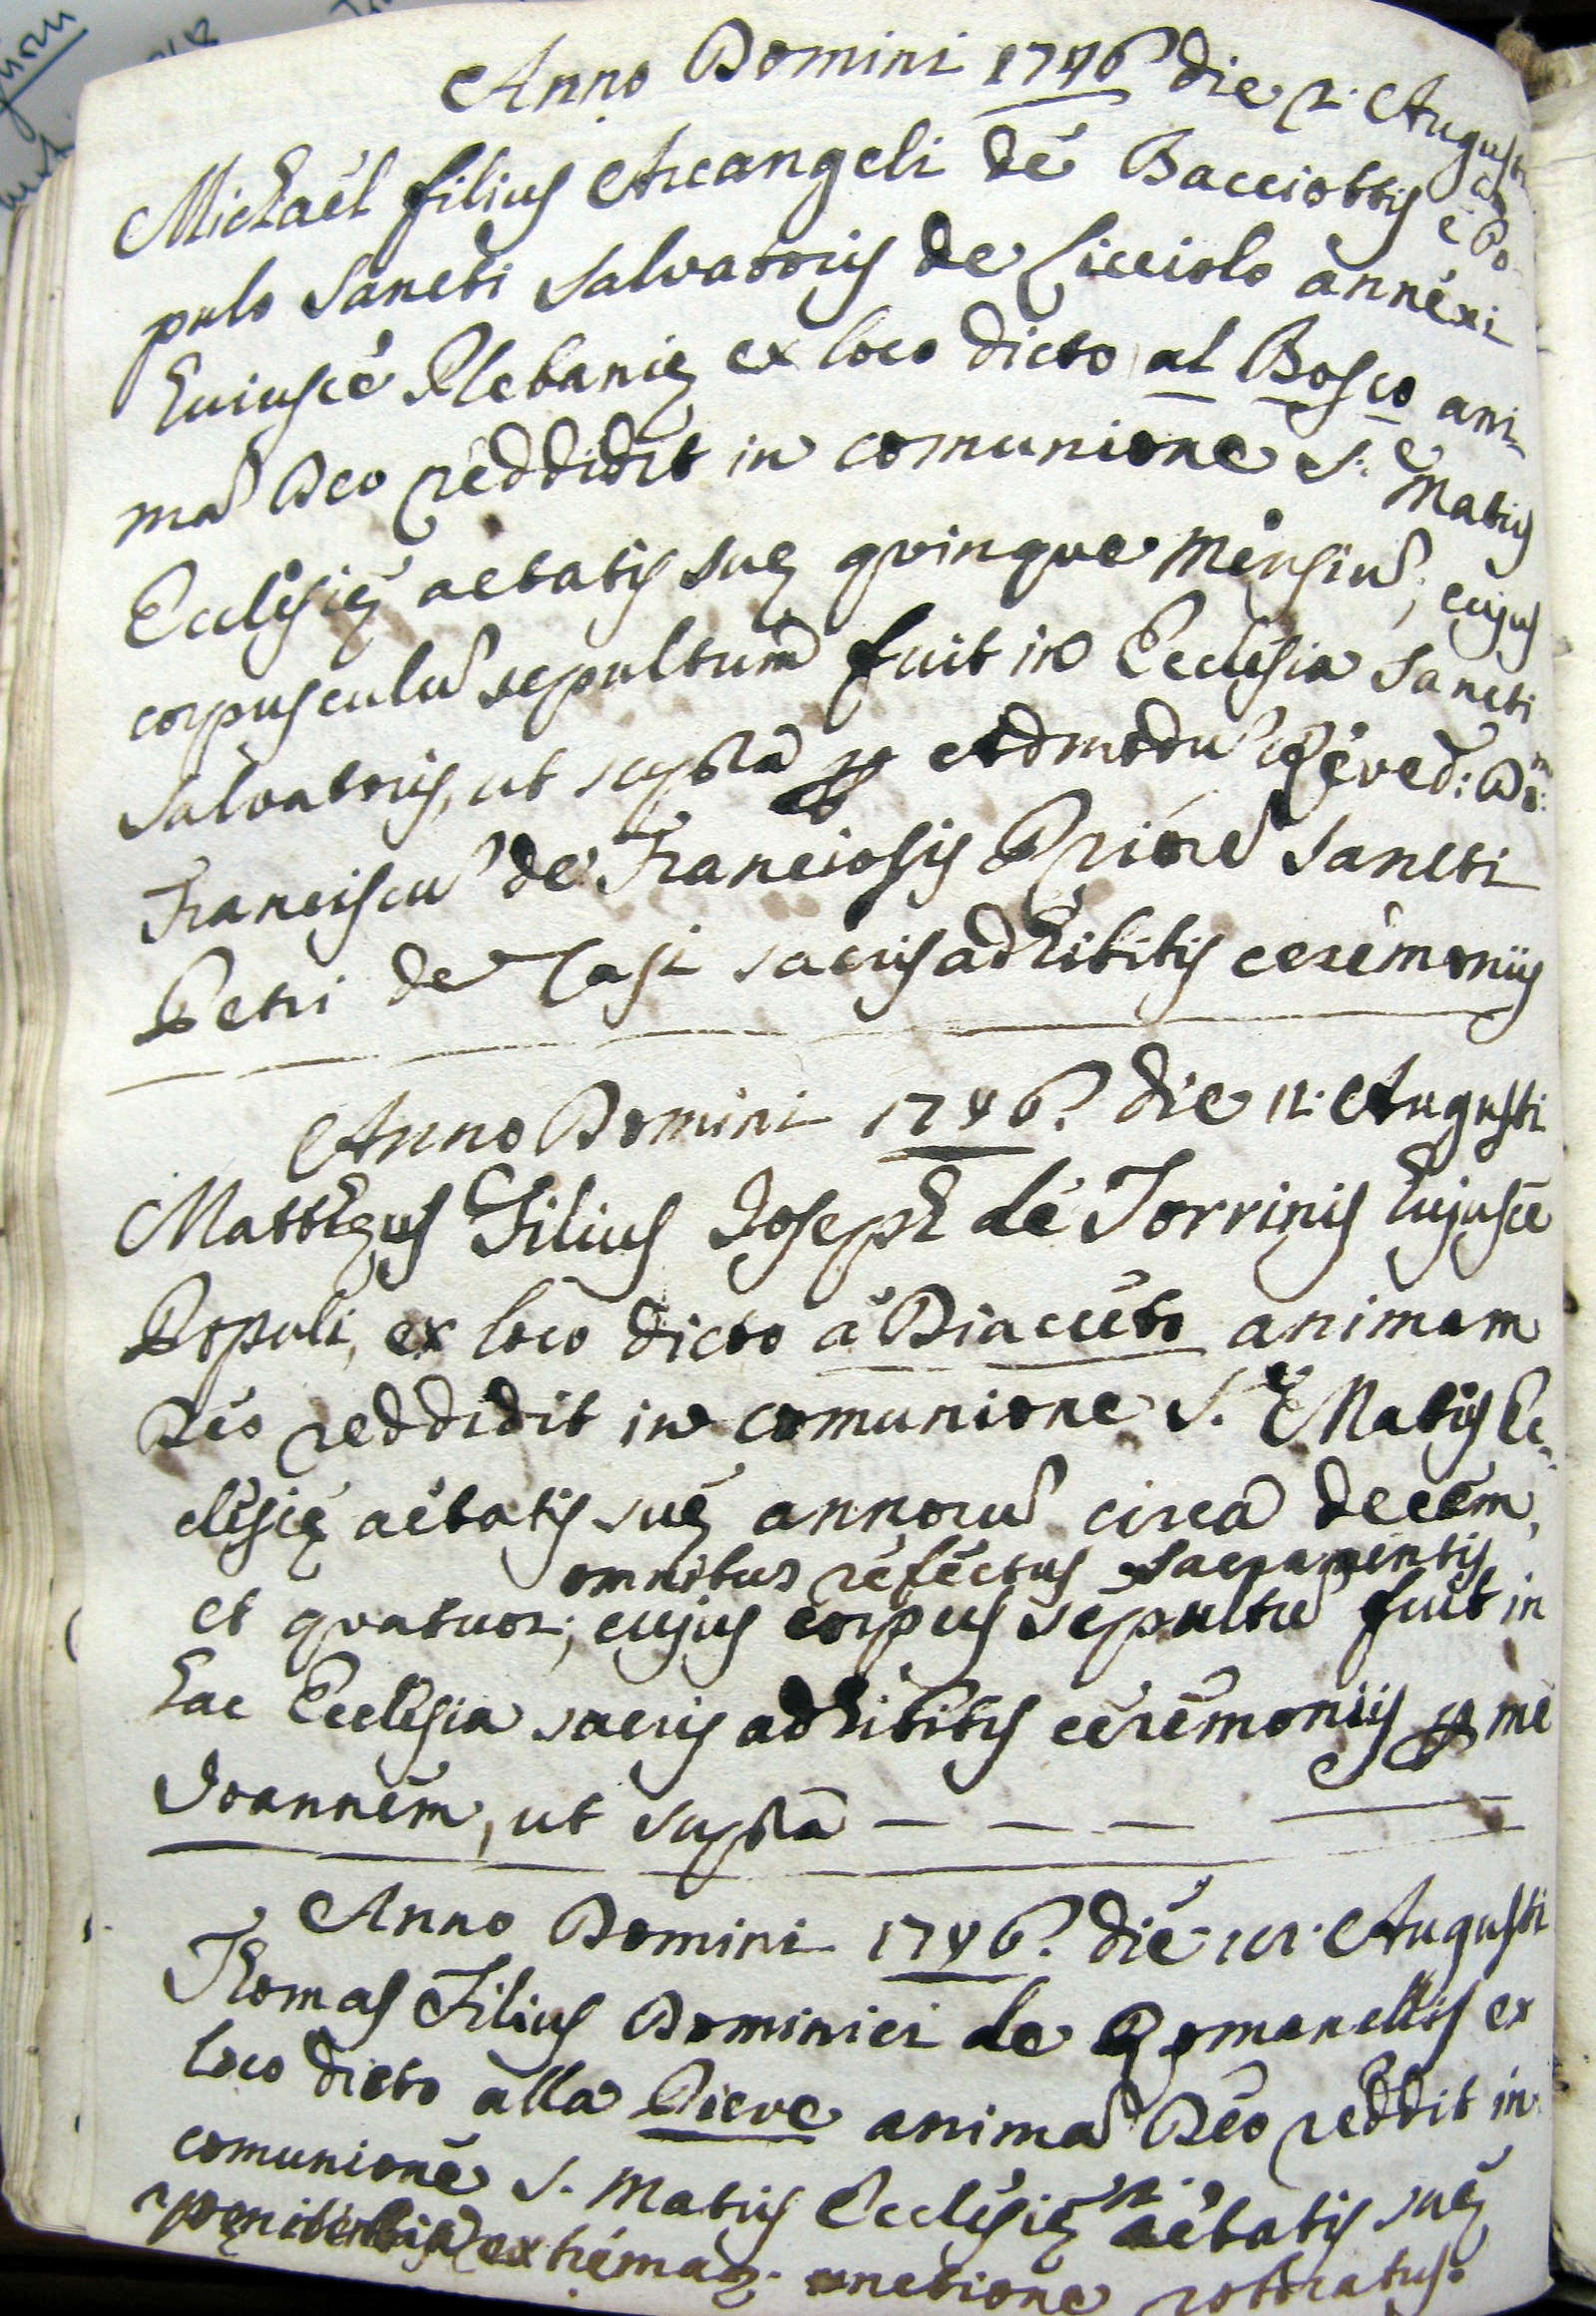 Anno Domini 1746 die 2. Augusti
Michaël filius Arcangeli dé Bacciottis é Po
pulo Sancti Salvatoris de Licciolo annéxi
huiuscé Plebanię ex loco dicto al Bosco ani
mã Deo réddidit in comunione S.ᵉ Matris
Ecclésię aetatis suę quinque ménsiũ; cujus
corpusculũ sepultum fuit in Ecclésia Sancti
Salvatoris, ut supra ꝑ Admodũ Réved: Dm:
Franciscũ de Franciosis Prioré Sancti
Petri de Casi sacris adhibitis cerémoniis
Anno Domini 1746. die 12. Augusti
Matthęus Filius Joseph dé Torrinis hujuscé
Populi, ex loco dicto a Diaccéto animam
Déo reddidit in comunione S.ᵉ Matris Ec
clésię aétatis suę annorũ circa decém,
omnibus réféctus Sacramentis
et quatuor; cujus corpus sépultũ fuit in
hac Ecclésia sacris adhibitis cérémoniis ꝑ mé
Joanném, ut supra
Anno Domini 1746. dié Augusti
Thomas Filius Dominici de Romanellis ex
loco dicto alla Pieve animã Déo réddit in
comunioné S. Matris Ecclésię aétatis suę
extréma unctione roboratus